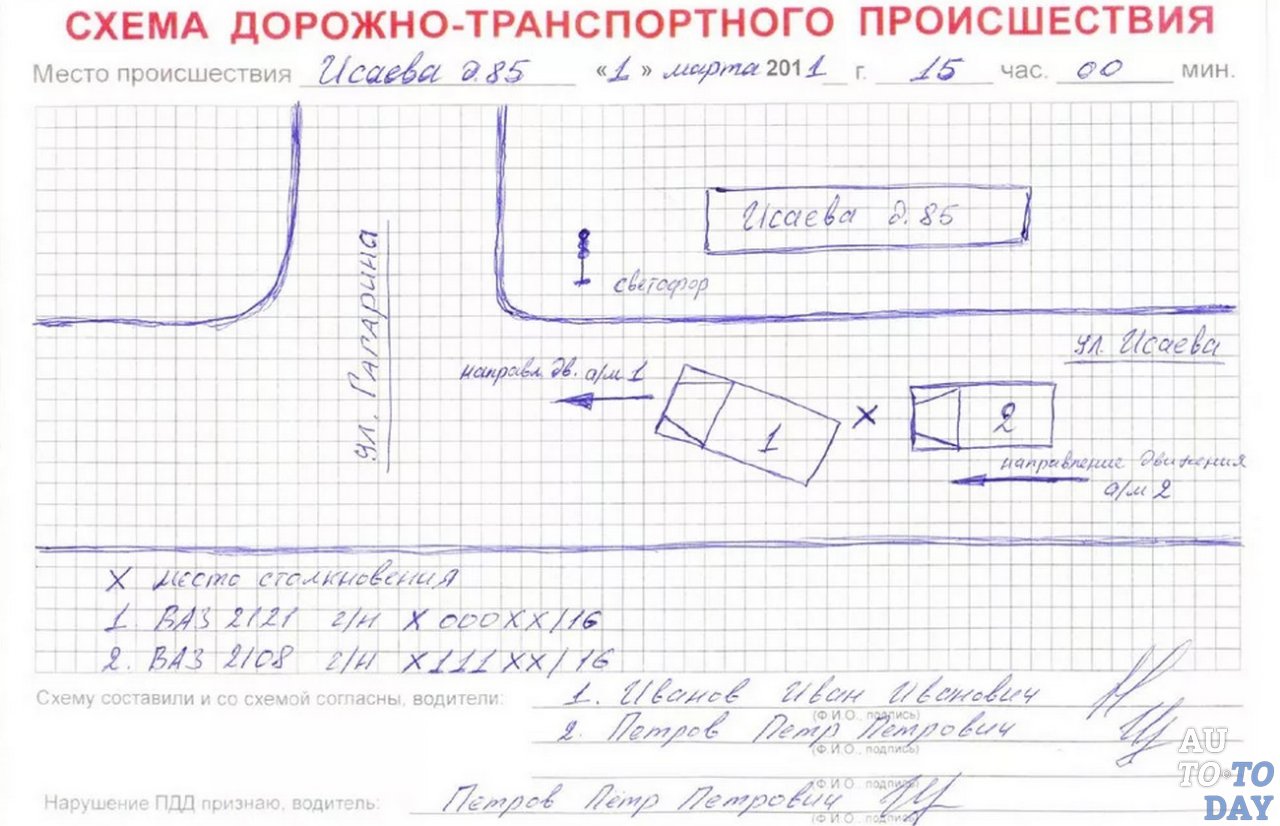 СХЕМА ДОРОЖНО-ТРАНСПОРТНОГО ПРОИСШЕСТВИЯ
Место происшествия Исаева д.85 «1» марта 2011 г. 15 час. 00 мин.
Исаева д.85
светофор
ул. Гагарина
ул. Исаева
направл. дв. а/м 1
1
X
2
направление движения
а/м 2
X место столкновения
1. ВАЗ 2121 г/н X000XX/16
2. ВАЗ 2108 г/н X111XX/16
Схему составили и со схемой согласны, водители: 1. Иванов Иван Иванович
(Ф.И.О., подпись)
2. Петров Петр Петрович
(Ф.И.О., подпись)
(Ф.И.О., подпись)
Нарушение ПДД признаю, водитель: Петров Пётр Петрович
(Ф.И.О., подпись)
AUTO TODAY